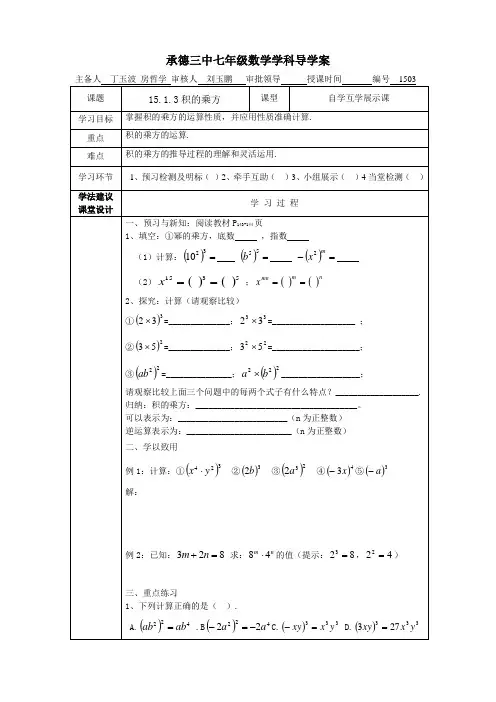 承德三中七年级数学学科导学案
主备人 丁玉波 房哲学 审核人 刘玉鹏 审批领导 授课时间 编号 1503
课题 15.1.3积的乘方 课型 自学互学展示课
学习目标 掌握积的乘方的运算性质，并应用性质准确计算.
重点 积的乘方的运算.
难点 积的乘方的推导过程的理解和灵活运用.
学习环节 1、预习检测及明标（ ）2、牵手互助（ ）3、小组展示（ ）4当堂检测（ ）
学法建议
课堂设计 学 习 过 程
一、预习与新知：阅读教材P 页
1、填空：①幂的乘方，底数____ ，指数____
（1）计算：(10²)³ = ____ (b⁵)⁵ = ____ −(x²)^m =
（2）x¹⁵ = ( )³ = ( )⁵ ；x^mn = ( )^m = ( )^n
2、探究：计算（请观察比较）
①(2×3)³=____________；2³×3³=________________ ；
②(3×5)²=____________；3²×5²=________________；
③(ab²)²=____________；a²×(b²)²________________；
请观察比较上面三个问题中的每两个式子有什么特点？________________.
归纳：积的乘方：________________________________。
可以表示为：______________________（n为正整数）
逆运算表示为：______________________（n为正整数）
二、学以致用
例1：计算：①(x⁴·y²)³ ②(2b)³ ③(2a³)² ④(−3x)⁴⑤(−a)³
解：
例2：已知：3m+2n=8 求：8^m·4^n的值（提示：2³=8，2²=4）
三、重点练习
1、下列计算正确的是（ ）.
A.(ab²)²=ab⁴ .B(−2a²)²=−2a⁴C.(−xy)³=x³y³ D.(3xy)³=27x³y³